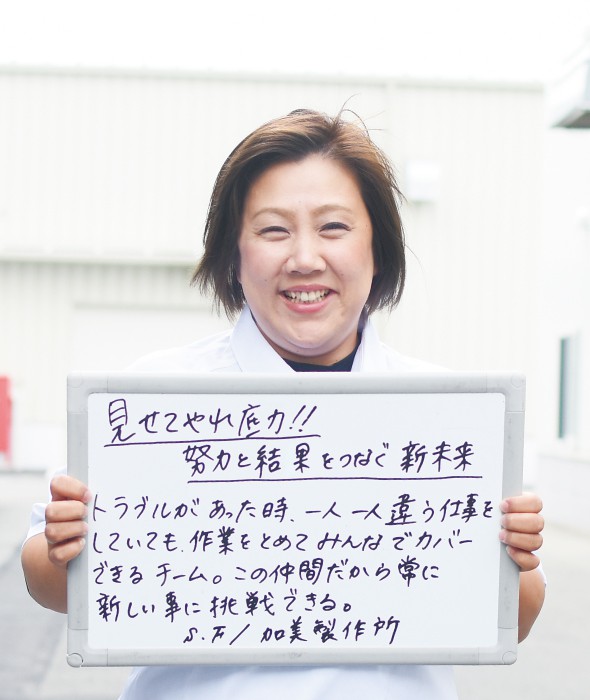 見せてやれ底力!!
努力と結果をつなぐ新未来
トラブルがあった時、一人一人違う仕事を
していても、作業をとめてみんなでカバー
できるチーム。この仲間だから常に
新しい事に挑戦できる。
加美製作所